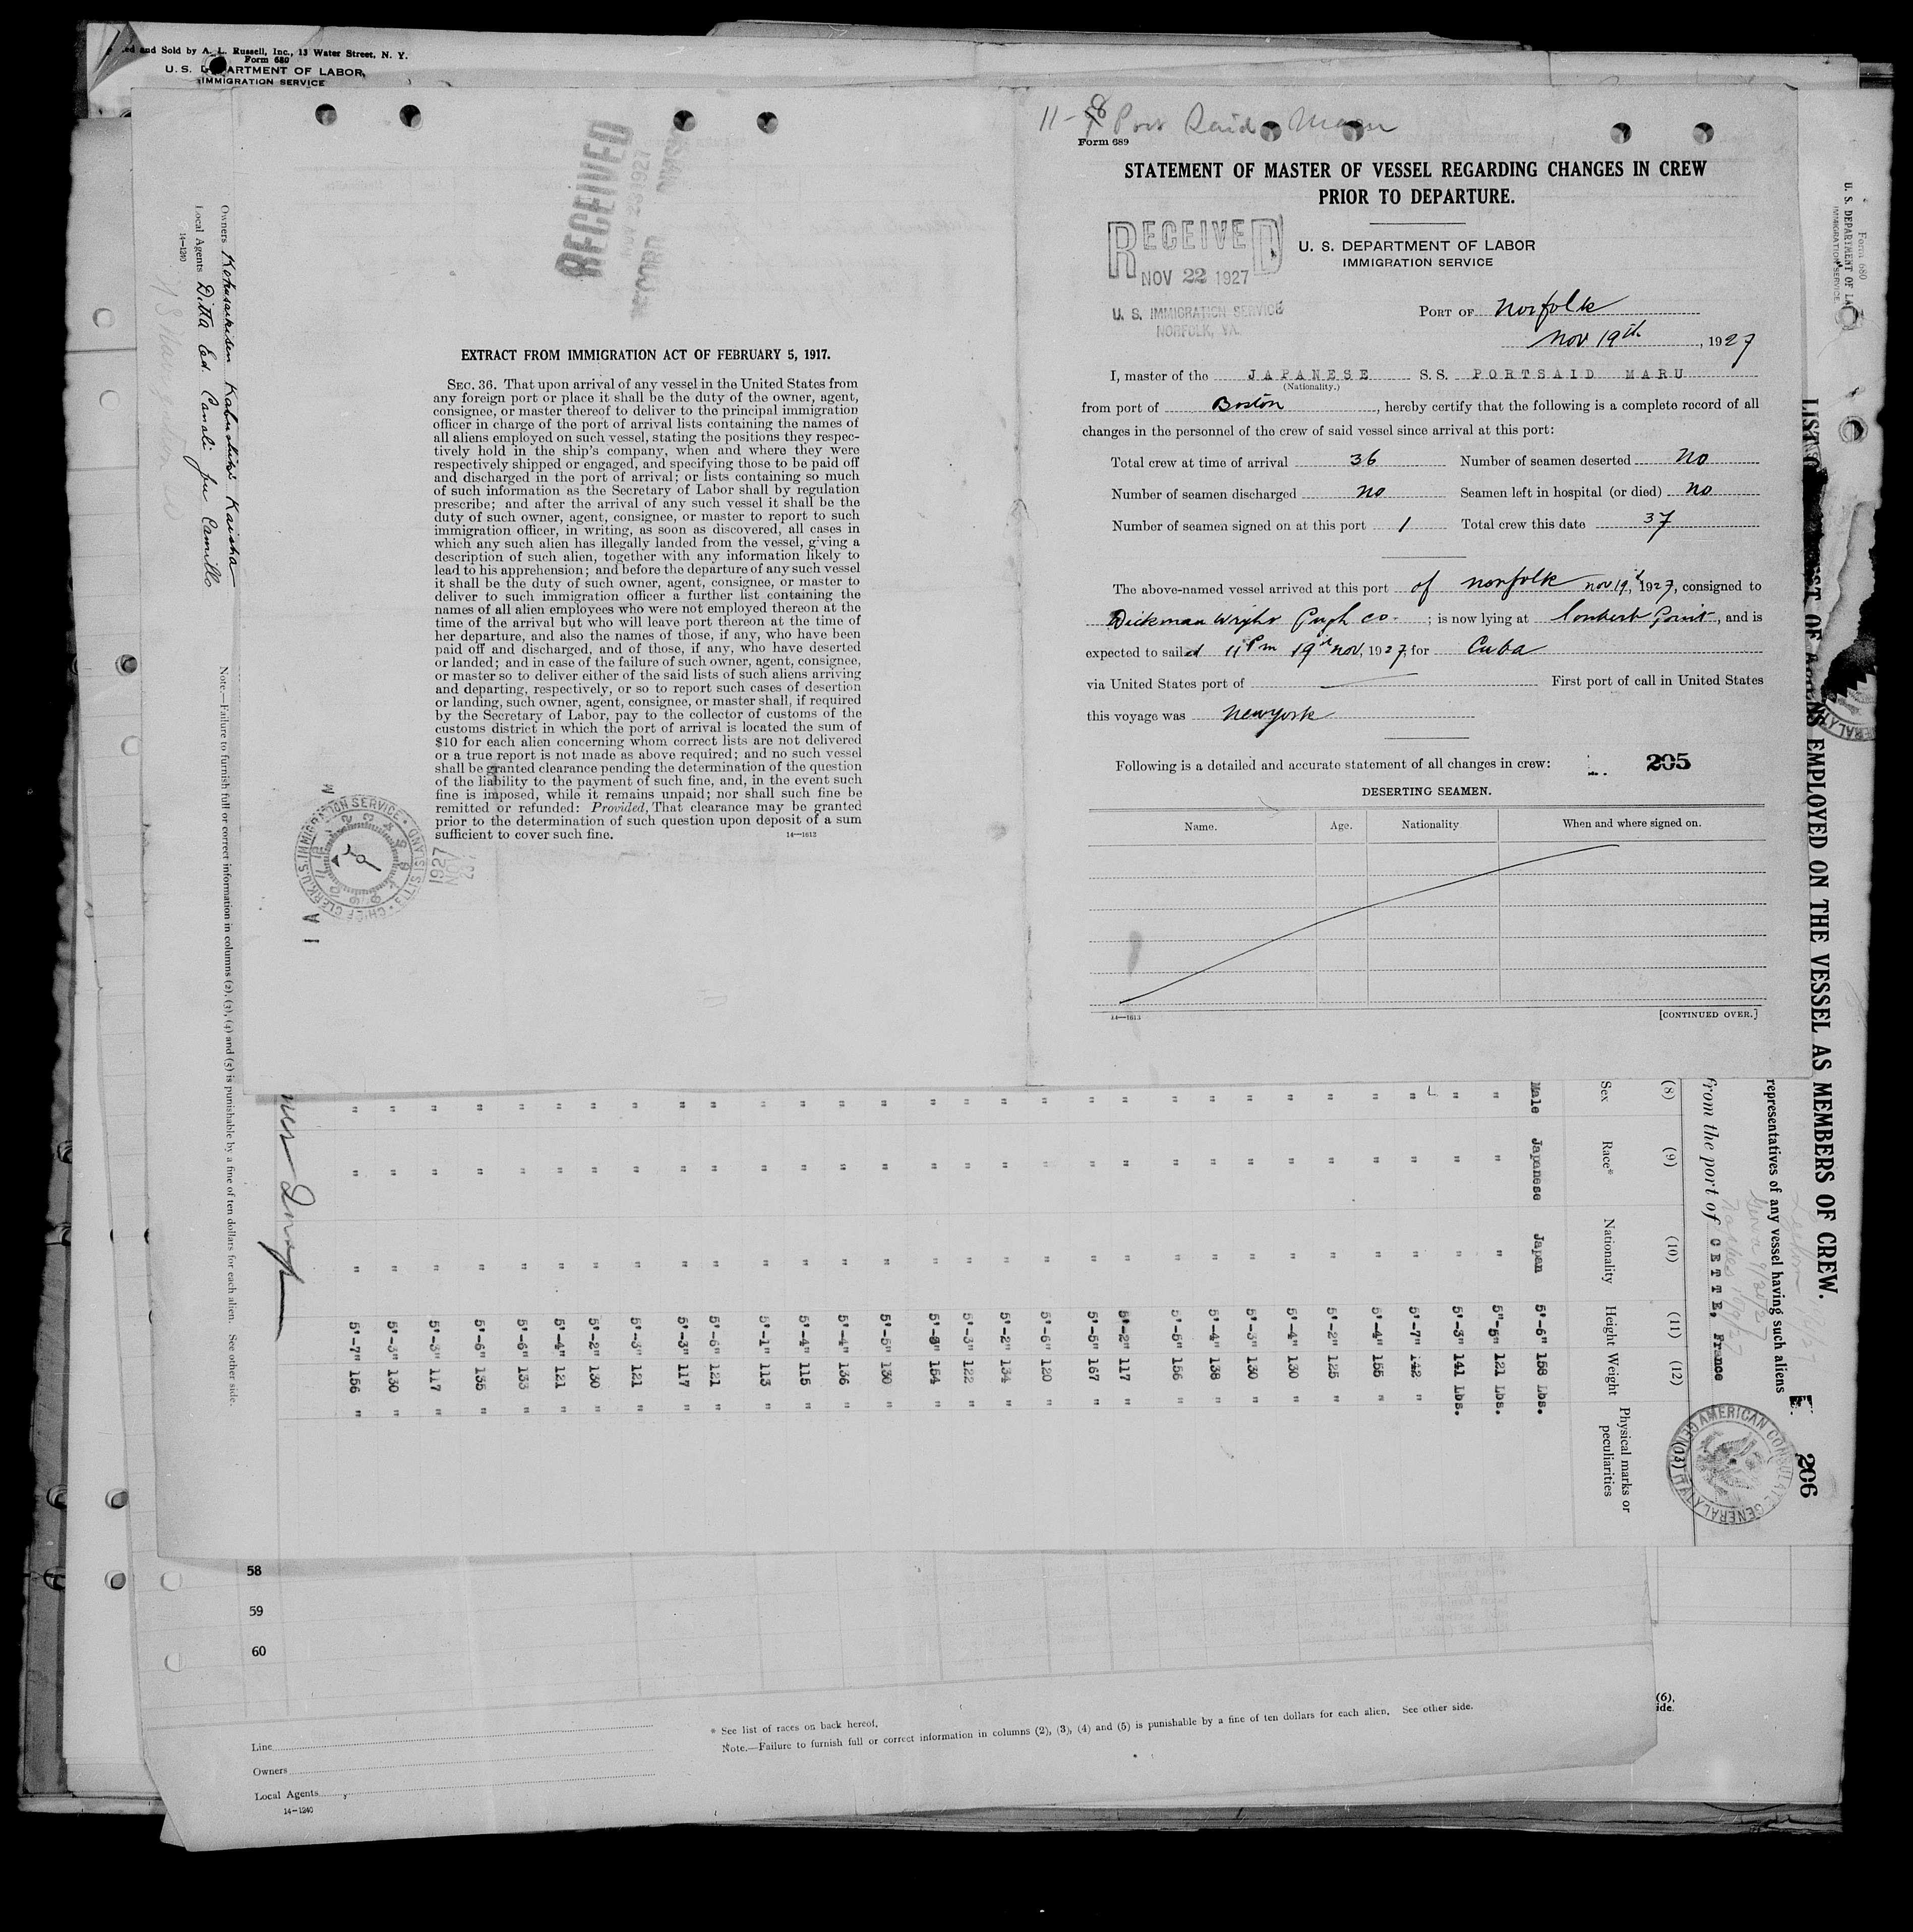 ed and Sold by A. L. Russell, Inc., 13 Water Street, N. Y.
Form 680
U. S. DEPARTMENT OF LABOR,
IMMIGRATION SERVICE
RECEIVED
NOV 23 1927
RECORD
EXTRACT FROM IMMIGRATION ACT OF FEBRUARY 5, 1917.
SEC. 36. That upon arrival of any vessel in the United States from
any foreign port or place it shall be the duty of the owner, agent,
consignee, or master thereof to deliver to the principal immigration
officer in charge of the port of arrival lists containing the names of
all aliens employed on such vessel, stating the positions they respec-
tively hold in the ship's company, when and where they were
respectively shipped or engaged, and specifying those to be paid off
and discharged in the port of arrival; or lists containing so much
of such information as the Secretary of Labor shall by regulation
prescribe; and after the arrival of any such vessel it shall be the
duty of such owner, agent, consignee, or master to report to such
immigration officer, in writing, as soon as discovered, all cases in
which any such alien has illegally landed from the vessel, giving a
description of such alien, together with any information likely to
lead to his apprehension; and before the departure of any such vessel
it shall be the duty of such owner, agent, consignee, or master to
deliver to such immigration officer a further list containing the
names of all alien employees who were not employed thereon at the
time of the arrival but who will leave port thereon at the time of
her departure, and also the names of those, if any, who have been
paid off and discharged, and of those, if any, who have deserted
or landed; and in case of the failure of such owner, agent, consignee,
or master so to deliver either of the said lists of such aliens arriving
and departing, respectively, or so to report such cases of desertion
or landing, such owner, agent, consignee, or master shall, if required
by the Secretary of Labor, pay to the collector of customs of the
customs district in which the port of arrival is located the sum of
$10 for each alien concerning whom correct lists are not delivered
or a true report is not made as above required; and no such vessel
shall be granted clearance pending the determination of the question
of the liability to the payment of such fine, and, in the event such
fine is imposed, while it remains unpaid; nor shall such fine be
remitted or refunded: Provided, That clearance may be granted
prior to the determination of such question upon deposit of a sum
sufficient to cover such fine.
14—1613
CHIEF CLERK, U.S. IMMIGRATION SERVICE
1927
NOV
23
11-8 Port Said Maru
Form 689
STATEMENT OF MASTER OF VESSEL REGARDING CHANGES IN CREW
PRIOR TO DEPARTURE.
RECEIVED
NOV 22 1927
U. S. IMMIGRATION SERVICE
NORFOLK, VA.
U. S. DEPARTMENT OF LABOR
IMMIGRATION SERVICE
PORT OF Norfolk
Nov 19th, 1927
I, master of the JAPANESE S.S. PORTSAID MARU
(Nationality.)
from port of Boston, hereby certify that the following is a complete record of all
changes in the personnel of the crew of said vessel since arrival at this port:
Total crew at time of arrival 36 Number of seamen deserted No
Number of seamen discharged no Seamen left in hospital (or died) no
Number of seamen signed on at this port 1 Total crew this date 37
The above-named vessel arrived at this port of Norfolk Nov 19th, 1927, consigned to
Dickman Wright Pugh Co. ; is now lying at Lambert Point, and is
expected to sailed 11 Pm 19th Nov, 1927, for Cuba
via United States port of First port of call in United States
this voyage was Newyork
Following is a detailed and accurate statement of all changes in crew:
205
DESERTING SEAMEN.
Name. Age. Nationality When and where signed on.
14—1613
[CONTINUED OVER.]
Owners Kokusaikisen Kabushiki Kaisha
Local Agents Ditta Ed. Canali fu Camillo
14-1240
Note.—Failure to furnish full or correct information in columns (2), (3), (4) and (5) is punishable by a fine of ten dollars for each alien. See other side.
Form 680
U. S. DEPARTMENT OF LA
IMMIGRATION SERVICE
LIST OF ALIENS EMPLOYED ON THE VESSEL AS MEMBERS OF CREW.
206
representatives of any vessel having such aliens
from the port of CETTE, France
AMERICAN CONSULATE GENERAL
(8) (9) (10) (11) (12)
Sex Race* Nationality Height Weight Physical marks or peculiarities
Male Japanese Japan 5'-6" 158 Lbs.
" " " 5"-5" 121 Lbs.
" " " 5'-3" 141 Lbs.
" " " 5'-7" 142 "
" " " 5'-4" 155 "
" " " 5'-2" 125 "
" " " 5'-4" 130 "
" " " 5'-3" 130 "
" " " 5'-4" 138 "
" " " 5'-5" 156 "
" " " 5'-2" 117 "
" " " 5'-5" 167 "
" " " 5'-6" 120 "
" " " 5'-2" 134 "
" " " 5'-3" 122 "
" " " 154 "
" " " 5'-5" 130 "
" " " 5'-4" 136 "
" " " 5'-4" 115 "
" " " 5'-1" 113 "
" " " 5'-6" 121 "
" " " 5'-3" 117 "
" " " 5'-3" 121 "
" " " 5'-2" 130 "
" " " 5'-4" 121 "
" " " 5'-6" 133 "
" " " 5'-6" 135 "
" " " 5'-3" 117 "
" " " 5'-3" 130 "
" " " 5'-7" 156 "
58
59
60
(6),
ide.
* See list of races on back hereof.
Note.—Failure to furnish full or correct information in columns (2), (3), (4) and (5) is punishable by a fine of ten dollars for each alien. See other side.
Line
Owners
Local Agents
14-1240